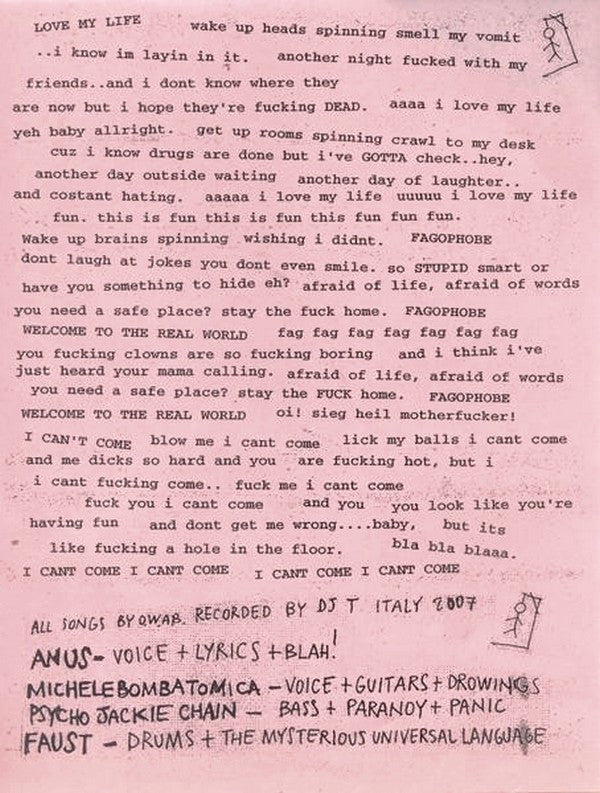 LOVE MY LIFE wake up heads spinning smell my vomit
..i know im layin in it. another night fucked with my
friends..and i dont know where they
are now but i hope they're fucking DEAD. aaaa i love my life
yeh baby allright. get up rooms spinning crawl to my desk
cuz i know drugs are done but i've GOTTA check..hey,
another day outside waiting another day of laughter..
and costant hating. aaaaa i love my life uuuuu i love my life
fun. this is fun this is fun this fun fun fun.
Wake up brains spinning wishing i didnt. FAGOPHOBE
dont laugh at jokes you dont even smile. so STUPID smart or
have you something to hide eh? afraid of life, afraid of words
you need a safe place? stay the fuck home. FAGOPHOBE
WELCOME TO THE REAL WORLD fag fag fag fag fag fag fag
you fucking clowns are so fucking boring and i think i've
just heard your mama calling. afraid of life, afraid of words
you need a safe place? stay the FUCK home. FAGOPHOBE
WELCOME TO THE REAL WORLD oi! sieg heil motherfucker!
I CAN'T COME blow me i cant come lick my balls i cant come
and me dicks so hard and you are fucking hot, but i
i cant fucking come.. fuck me i cant come
fuck you i cant come and you you look like you're
having fun and dont get me wrong....baby, but its
like fucking a hole in the floor. bla bla blaaa.
I CANT COME I CANT COME I CANT COME I CANT COME
ALL SONGS BY QWAB. RECORDED BY DJ T ITALY 2007
ANUS - VOICE + LYRICS + BLAH!
MICHELEBOMBATOMICA - VOICE + GUITARS + DROWINGS
PSYCHO JACKIE CHAIN - BASS + PARANOY + PANIC
FAUST - DRUMS + THE MYSTERIOUS UNIVERSAL LANGUAGE